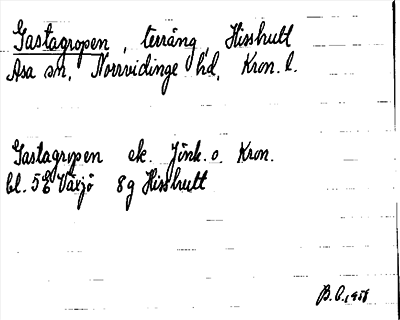 Gastagropen, terräng, Hisshult
Asa sn, Norrvidinge hd, Kron. l.
Gastagropen ek. Jönk. o. Kron.
bl. 5E Växjö 8g Hisshult
B.C. 1958